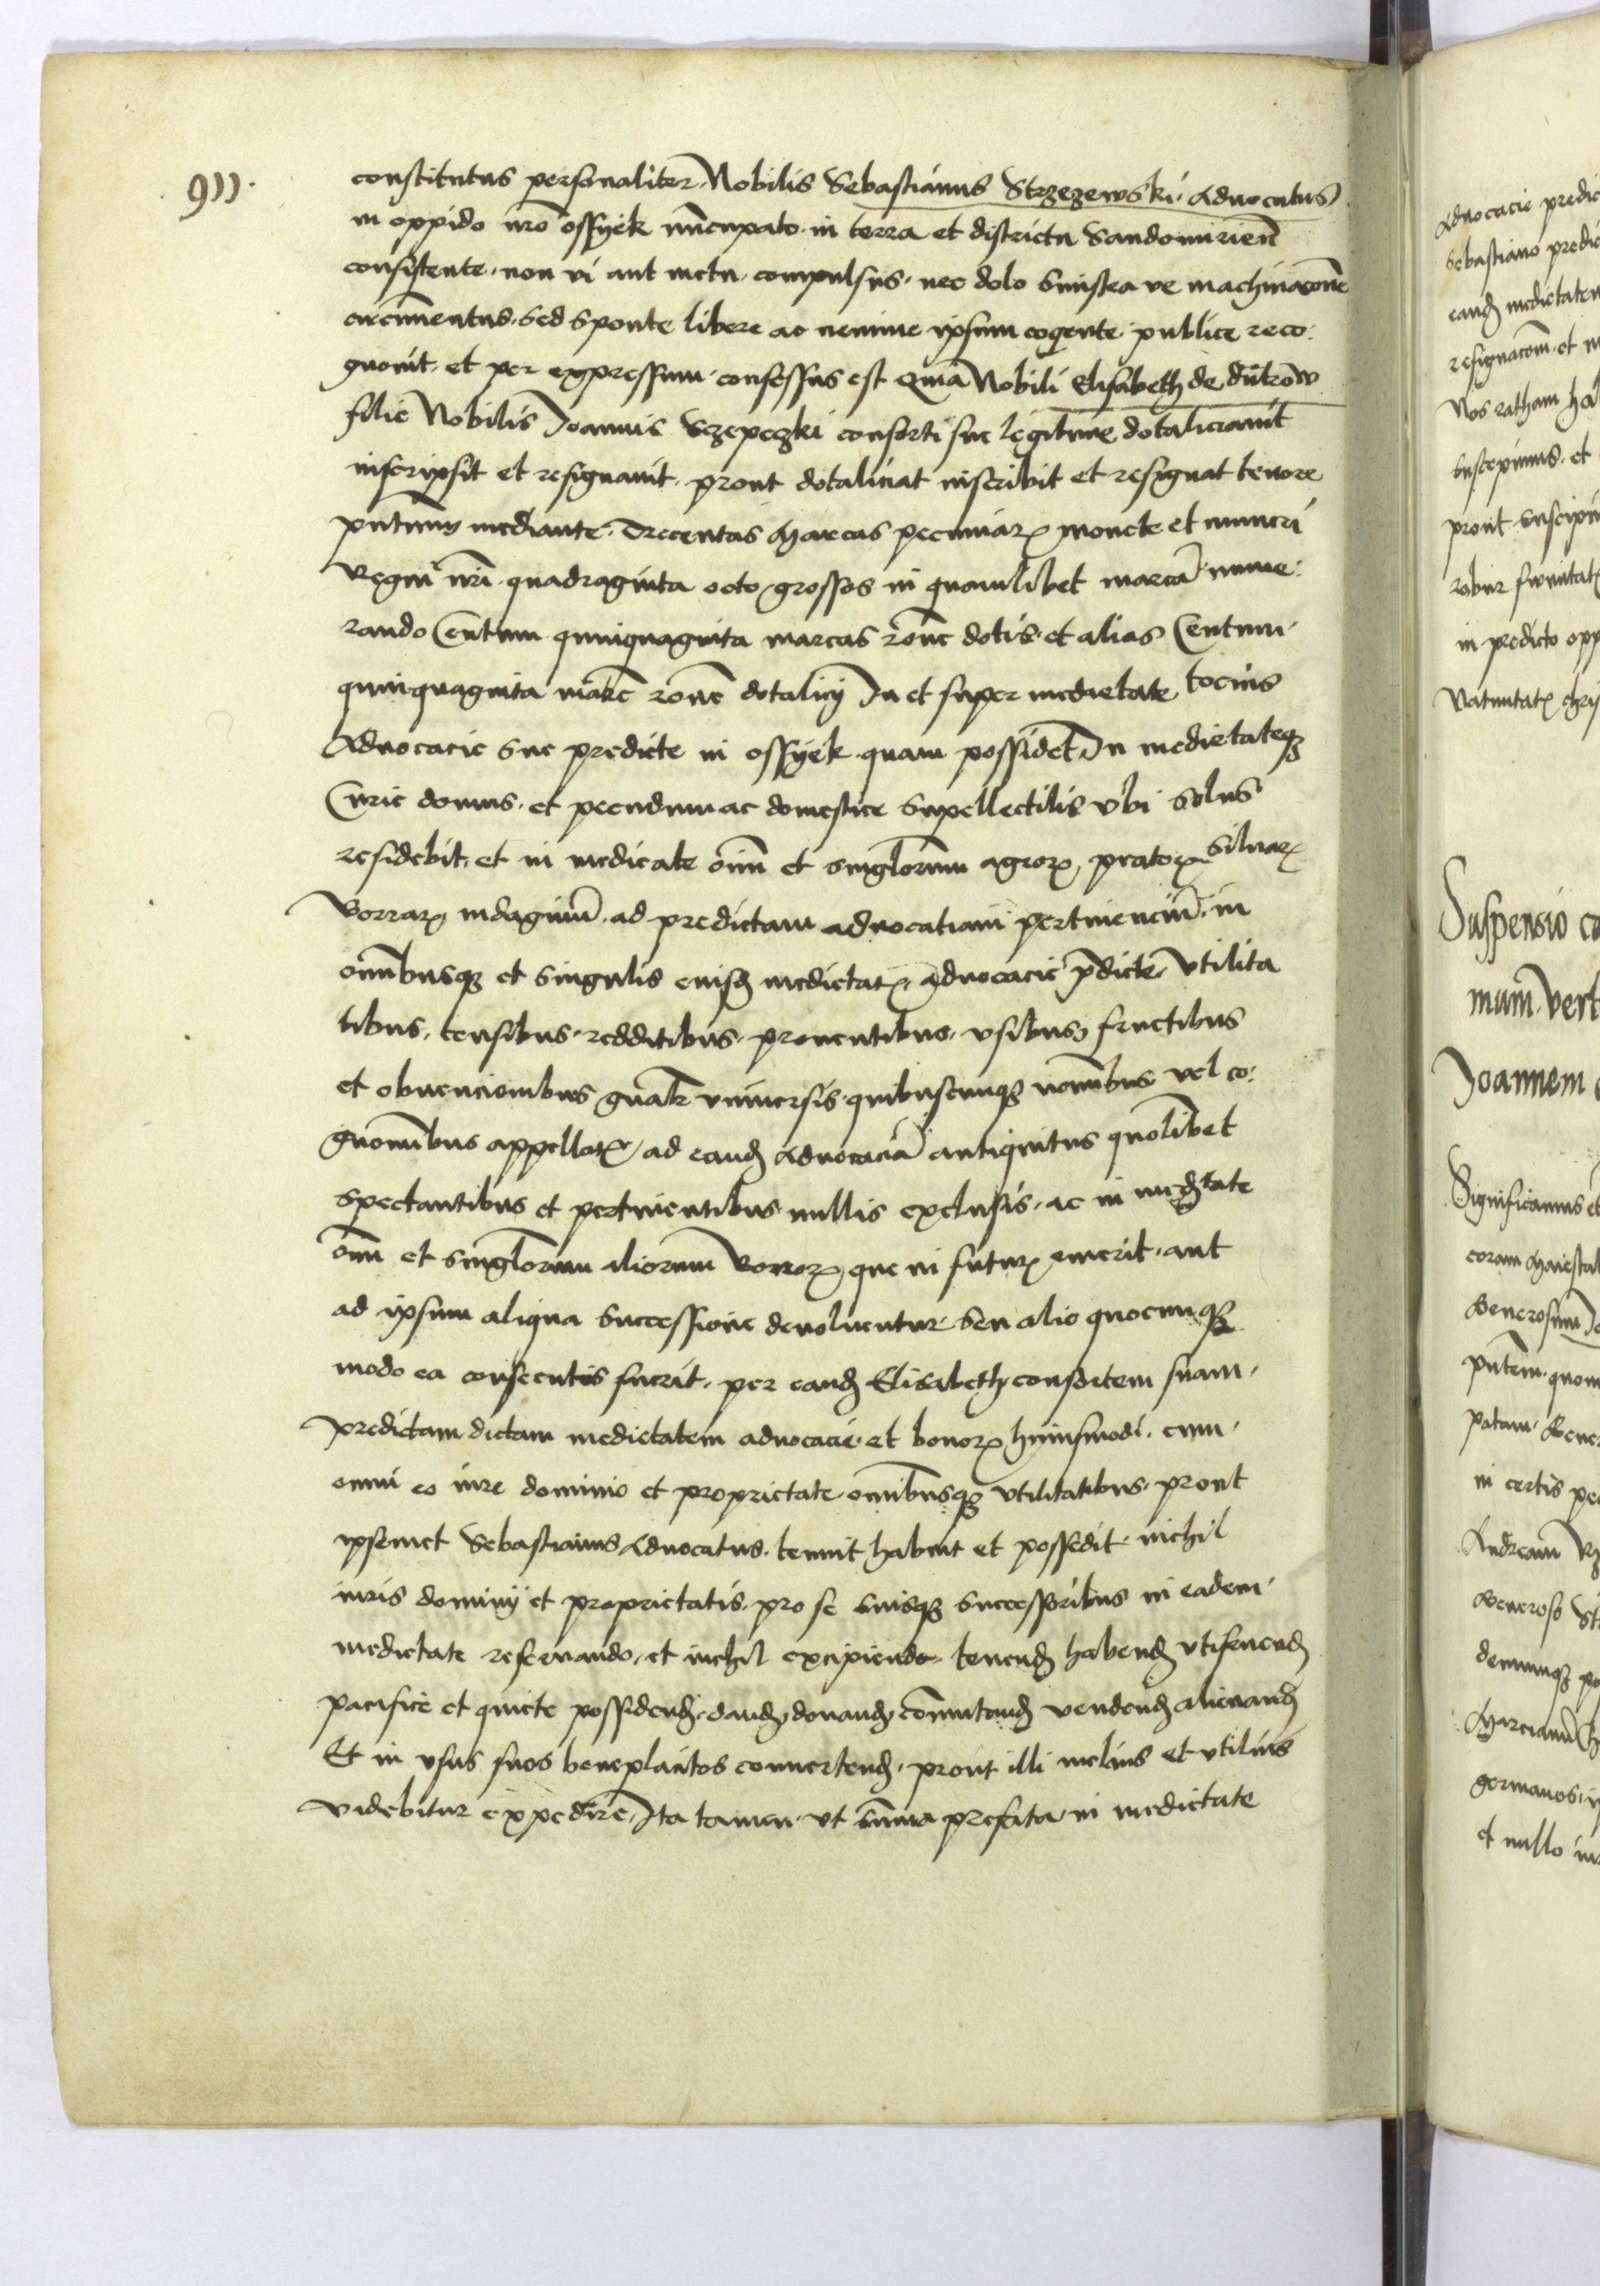 911.
constitutus personaliter Nobilis Sebastianus Strzezewski Aduocatus
in oppido nro ossyek nuncupato in terra et districtu Sandomirien
consistente, non vi aut metu compulsus, nec dolo sinistra ve machinacione
circumuentus, sed sponte libere ac nemine ipsum cogente publice reco:
gnouit et per expressum confessus est Quia Nobili Elisabeth de dutrow
filie Nobilis Joannis Szepeczki consorti sue legitime dotaliciauit
inscripsit et resignauit, prout dotaliciat inscribit et resignat tenore
pntium mediante Trecentas Marcas pecuniar monete et numeri
Regni nri quadraginta octo grossos in quamlibet marca nume:
rando Centum quinquaginta marcas rone dotis et alias Centum
quinquaginta marc rone dotalicij In et super medietate tocius
Aduocacie sue predicte in ossyek quam possidet In medietateq
Curie domus et pecudum ac domestice supellectilis vbi solus
residebit, et in medietate oim et singlorum agror prator siluar
Borrar indaginum ad predictam aduocatiam pertinencium in
omnibusq et singulis eiusd medietat aduocacie pdicte vtilita
tibus, censibus redditibus prouentibus vsibus fructibus
et obuencionibus gnalr vniuersis quibuscunq nominibus vel co:
gnominibus appellat ad eand Aduocacia antiquitus quolibet
spectantibus et pertinentibus nullis exclusis, ac in medietate
oim et singlorum aliorum Bonor que in futur emerit aut
ad ipsum aliqua successione deuoluentur seu alio quocunq
modo ea consecutus fuerit, per eand Elisabeth consortem suam
predictam dictam medietatem aduocacie et bonor huiusmodi cum
omni eo iure dominio et proprietate omnibusq vtilitatibus prout
ipsemet Sebastianus Aduocatus tenuit habuit et possedit nichil
iuris dominij et proprietatis pro se suisq successoribus in eadem
medietate reseruando et nichil excipiendo tenend habend vtifruend
pacifice et quiete possidend, dand, donand, comutand vendend alienand
Et in vsus suos beneplacitos conuertend prout illi melius et vtilius
videbitur expedire, Ita tamen vt summa prefata in medietate
Aduocacie predic
Sebastiano predic
eand medietatem
resignacom et
Nos ratham
suscepimus et
prout suscipi
robur
in predicto opp
Suspensio
mum vert
Joannem
Significamus
coram Maiestat
Generosum
pntem quom
patam
in certis pe
Andream
Generoso St
demumq
germanos
et nullo